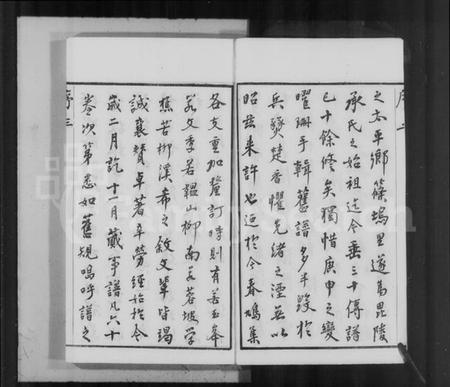 序二
之太平鄉篠塢里遂爲毘陵
承氏之始祖迄今垂三十傳譜
已十餘修矣獨惜庚申之變
曜珊手輯舊譜多半毀於
兵燹楚香懼先緒之湮無以
昭玆來許也迺於今春鳩集
各支重加釐訂時則有若玉奉
若文季若韞山柳南若蓉坡學
樵若柳溪希之敘文輩皆竭
誠襄贊卓著辛勞經始於今
歲二月訖十一月蕆事譜凡六十
卷次第悉如舊規嗚呼譜之
序三